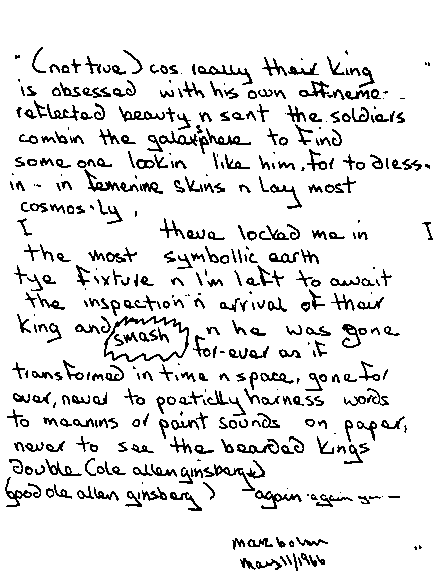 " (not true) cos really their king "
is obsessed with his own
reflected beauty n sent the soldiers
combin the galaxphere to find
some one lookin like him, for to dress-
in - in femenine skins n lay most
cosmos-ly,
I theve locked me in I
the most symbollic earth
tye fixture n I'm left to await
the inspection n arrival of their
king and smash n he was gone
for-ever as if
transformed in time n space, gone for
ever, never to poeticly harness words
to meanins or paint sounds on paper,
never to see the bearded kings
double (ole allen ginsberg)
(good ole allen ginsberg) again-again
marc bolan "
1966